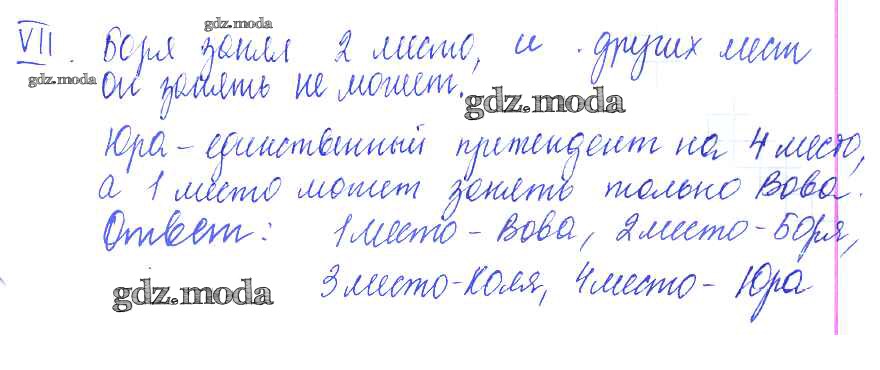 gdz.moda
VII. Боря занял 2 место, и других мест
gdz.moda
он занять не может.
gdz.moda
Юра – единственный претендент на 4 место,
а 1 место может занять только Вова.
Ответ: 1 место – Вова, 2 место – Боря,
3 место – Коля, 4 место – Юра
gdz.moda